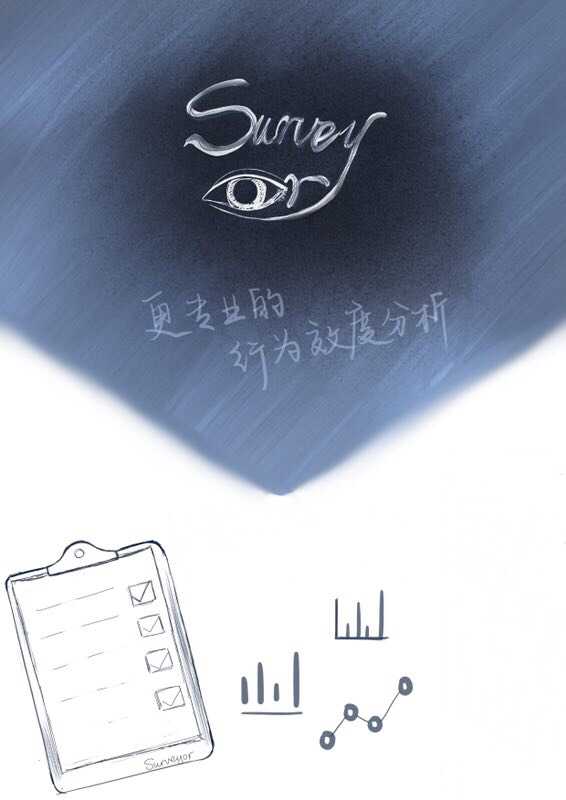 Survey
or
更专业的
行为效度分析
Surveyor